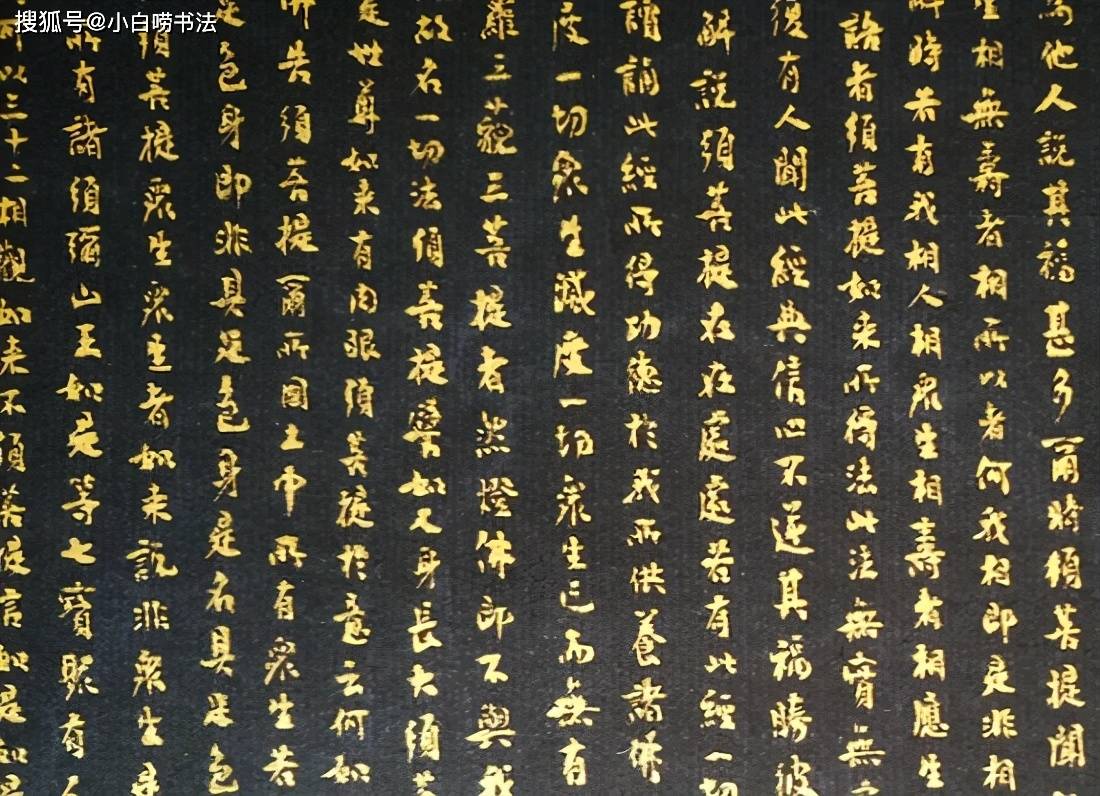 搜狐号@小白唠书法
為他人說其福甚多爾時須菩提聞
生相無壽者相所以者何我相即是非相
解時若有我相人相眾生相壽者相應生
語者須菩提如來所得法此法無實無
復有人聞此經典信心不逆其福勝彼
解說須菩提在在處處若有此經一切
讀誦此經所得功德於我所供養諸佛
度一切眾生滅度一切眾生已而無有
羅三藐三菩提者然燈佛即不與我
故名一切法須菩提譬如人身長大須菩
是世尊如來有肉眼須菩提於意云何如
佛告須菩提爾所國土中所有眾生若
是色身即非具足色身是名具足色
須菩提眾生眾生者如來說非眾生是
所有諸須彌山王如是等七寶聚有人
可以三十二相觀如來不須菩提言如是如是